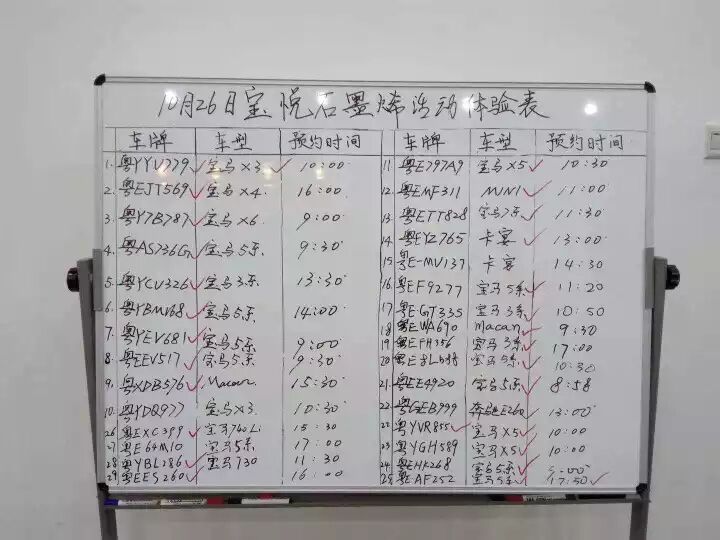 10月26日宝悦石墨烯活动体验表
车牌 车型 预约时间
1. 粤YYU779 宝马X3 10:00
2. 粤EJT569 宝马X4 16:00
3. 粤Y7B787 宝马X6 9:00
4. 粤AS736G 宝马5系 9:30
5. 粤YCU326 宝马3系 13:30
6. 粤YBMV68 宝马5系 14:00
7. 粤YEV681 宝马5系 9:00
8. 粤EEV517 宝马5系 9:30
9. 粤XDB576 Macan 15:30
10. 粤YDQ977 宝马X3 10:30
26 粤EXC399 宝马740Li 15:30
27 粤E64M10 宝马5系 17:00
28 粤YBL286 宝马730 11:30
29 粤EES260 16:00
车牌 车型 预约时间
11 粤E797A9 宝马X5 10:30
12. 粤EMF311 MINI 11:00
13. 粤ETT828 宝马7系 11:30
14 粤EYZ765 卡宴 13:00
15 粤E-MV137 卡宴 14:30
16 粤EF9277 宝马5系 11:20
17 粤EGT335 宝马3系 10:50
18 粤EWA690 Macan 9:30
19 粤EFH356 宝马3系 17:00
20 宝马5系 10:30
21. 粤EE4920 宝马5系 8:58
22. 粤GEB999 奔驰E260 13:00
22 粤YVR855 宝马X5 10:00
23 粤YGH589 宝马X5 10:00
24 粤EHK268 宝马5系
25 粤EAF252 宝马5系 17:50